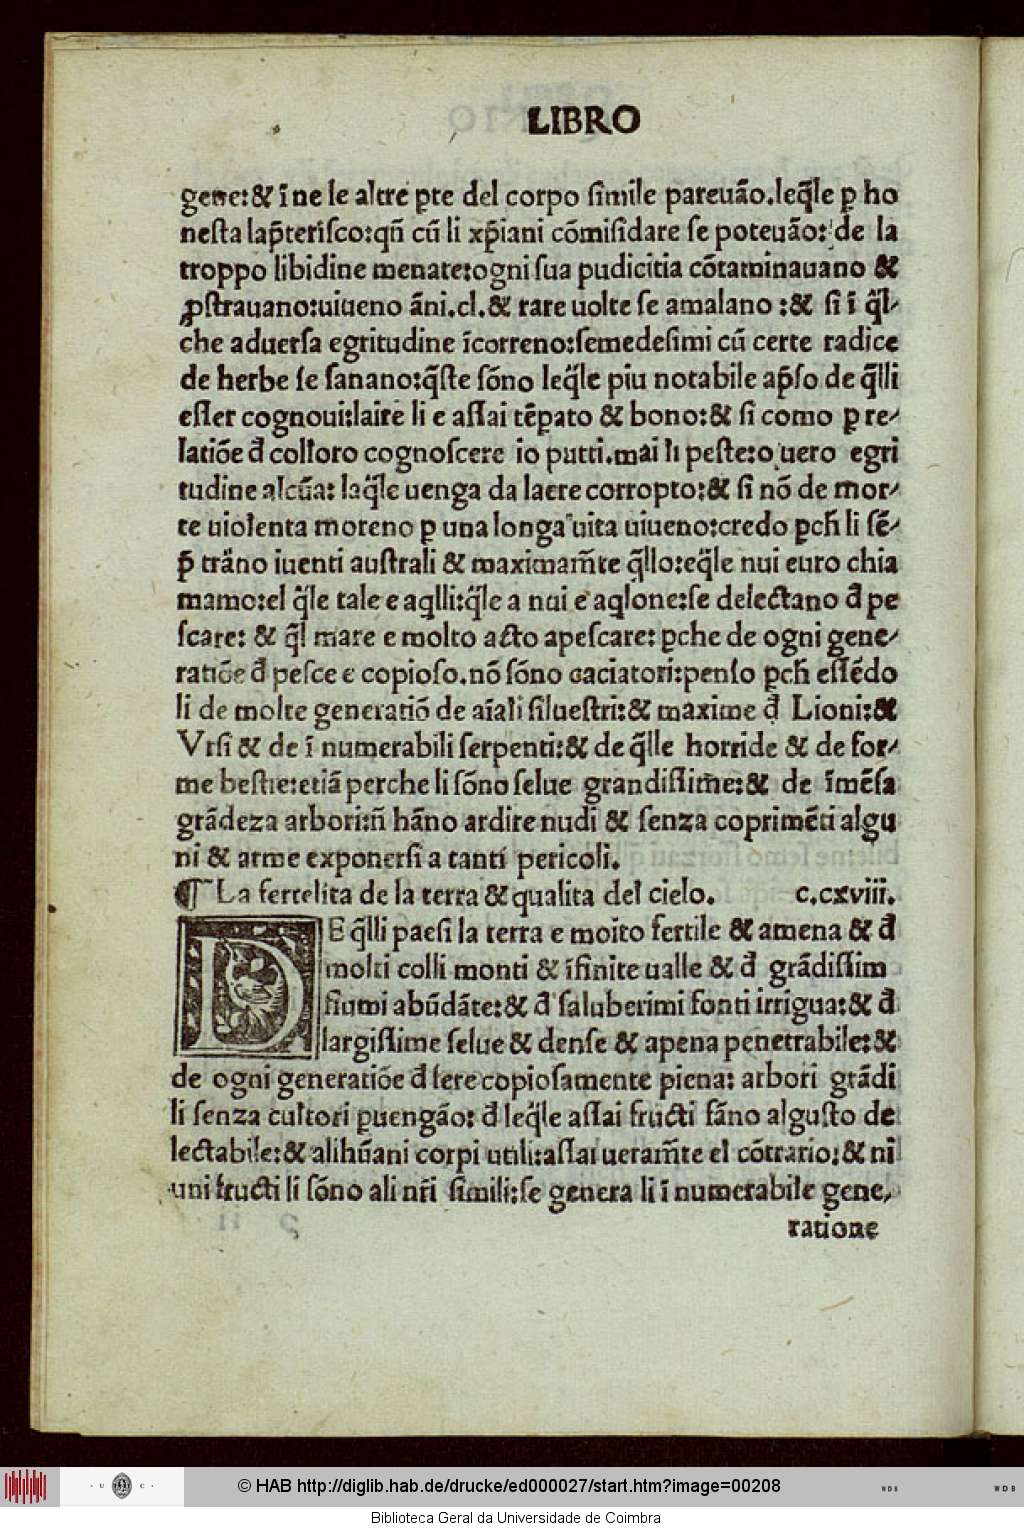 LIBRO
gene:& ĩ ne le altre ꝑte del corpo ſimile pareuão.leq̃le ꝑ ho
neſta lap̃teriſco:qñ cũ li xp̃iani cõmiſidare ſe poteuão: de la
troppo libidine menate:ogni ſua pudicitia cõtaminauano &
ꝓſtrauano:uiueno ãni.cl.& rare uolte ſe amalano :& ſi ĩ q̃l-
che aduerſa egritudine ĩcorreno:ſemedeſimi cũ certe radice
de herbe ſe ſanano:q̃ſte ſõno leq̃le piu notabile ap̃ſo de q̃lli
eſſer cognoui:laire li e aſſai tẽpato & bono:& ſi como ꝑ re-
latiõe đ colloro cognoſcere io putti.mai li peſte:o uero egri
tudine alcũa: laq̃le uenga da laere corropto:& ſi nõ de mor-
te uiolenta moreno ꝑ una longa uita uiueno:credo ꝑch̃ li ſẽ-
p̃ trãno iuenti auſtrali & maximam̃te q̃llo:eq̃le nui euro chia
mamo:el q̃le tale e aq̃lli:q̃le a nui e aq̃lone:ſe delectano đ pe
ſcare: & q̃l mare e molto acto apeſcare: ꝑche de ogni gene-
ratiõe đ peſce e copioſo.nõ ſõno caciatori:penſo ꝑch̃ eſſẽdo
li de molte generatiõ de aĩali ſilueſtri:& maxime đ Lioni:&
Vrſi & de ĩ numerabili ſerpenti:& de q̃lle horride & de for-
me beſtie:etiã perche li ſõno ſelue grandiſſime:& de ĩmẽſa
grãdeza arbori:ñ hãno ardire nudi & ſenza coprimẽti algu
ni & arme exponerſi a tanti pericoli.
¶ La ferrelita de la terra & qualita del cielo. c.cxviii.
DE q̃lli paeſi la terra e molto fertile & amena & đ
molti colli monti & ĩfinite ualle & đ grãdiſſim
fiumi abũdãte:& đ ſaluberimi fonti irrigua:& đ
largiſſime ſelue & denſe & apena penetrabile:&
de ogni generatiõe đ fere copioſamente piena: arbori grãdi
li ſenza cultori ꝑuengão: đ leq̃le aſſai fructi fãno al guſto de
lectabile:& alihũani corpi utili:aſſai ueram̃te el cõtrario:& ni
uni fructi li ſõno ali nr̃i ſimili:ſe genera li ĩ numerabile gene-
ratione
© HAB http://diglib.hab.de/drucke/ed000027/start.htm?image=00208
Biblioteca Geral da Universidade de Coimbra